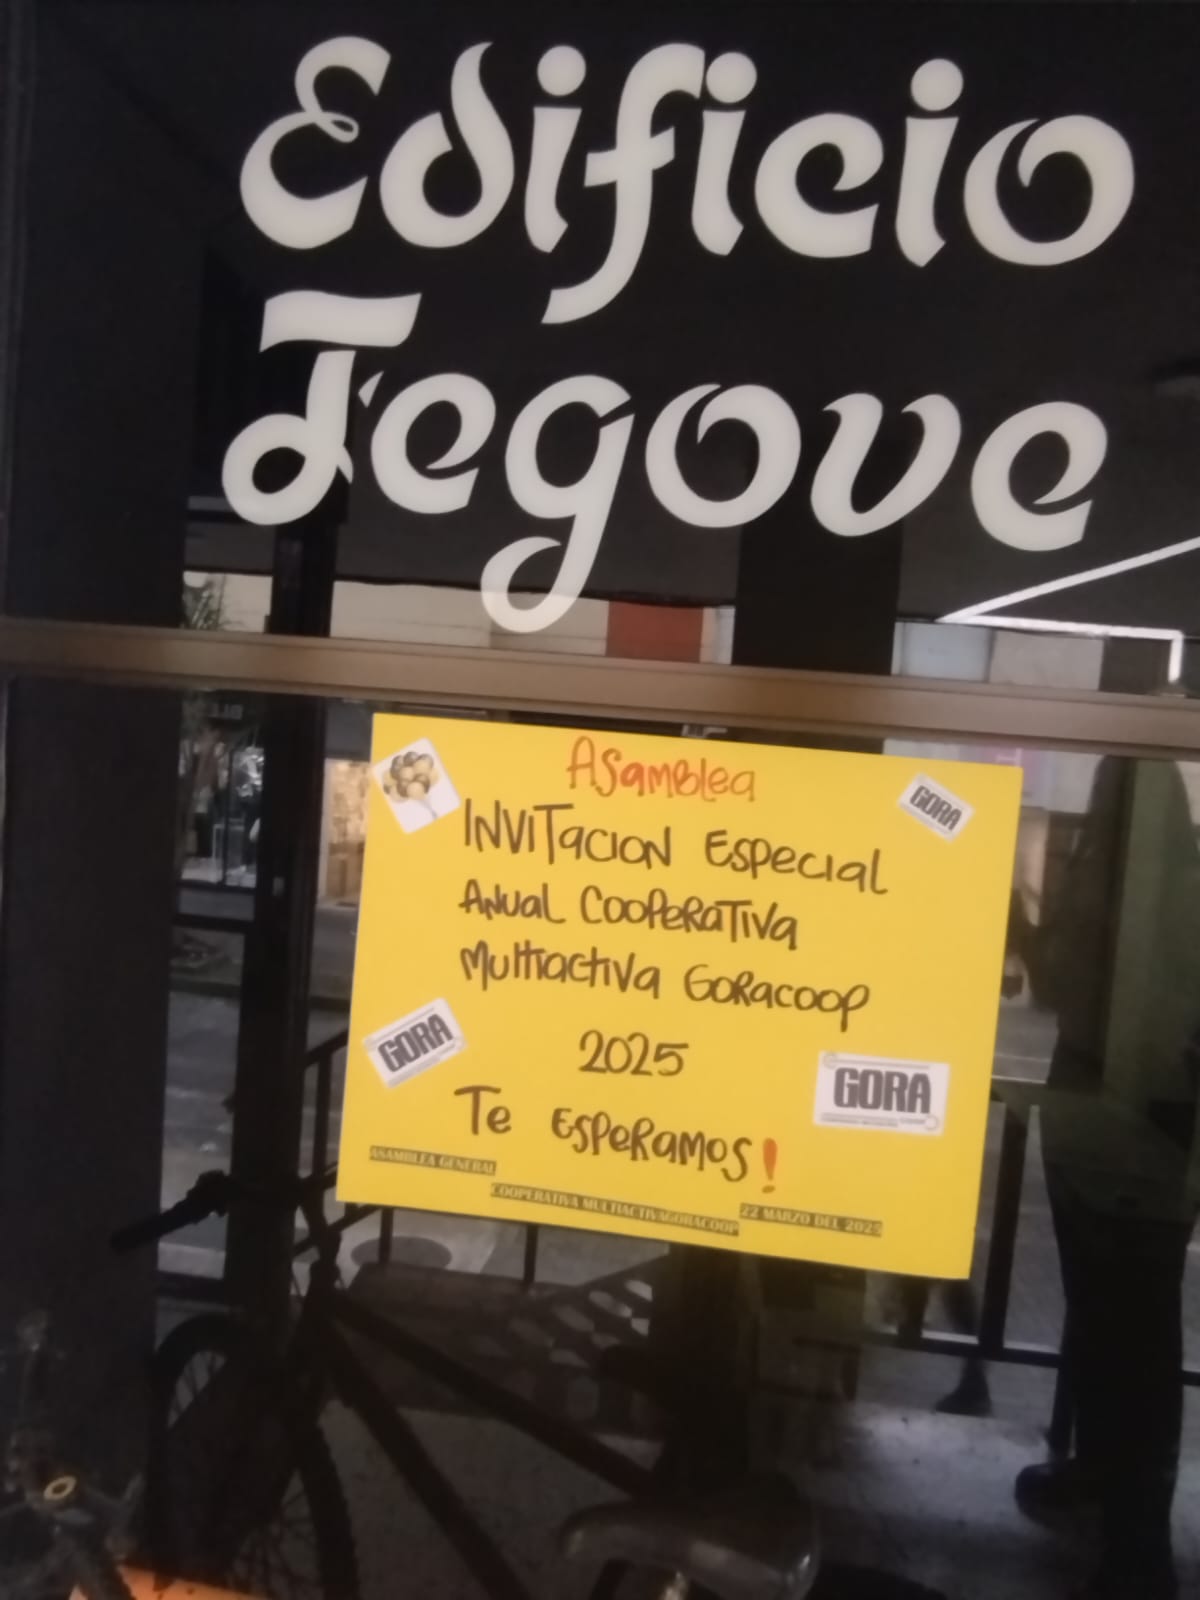 Edificio
Tegove
Asamblea
GORA
INVITACION ESPECIAL
ANUAL COOPERATIVA
MULTIACTIVA GORACOOP
GORA
2025
GORA
TE ESPERAMOS!
ASAMBLEA GENERAL
COOPERATIVA MULTIACTIVAGORACOOP
22 MARZO DEL 2025